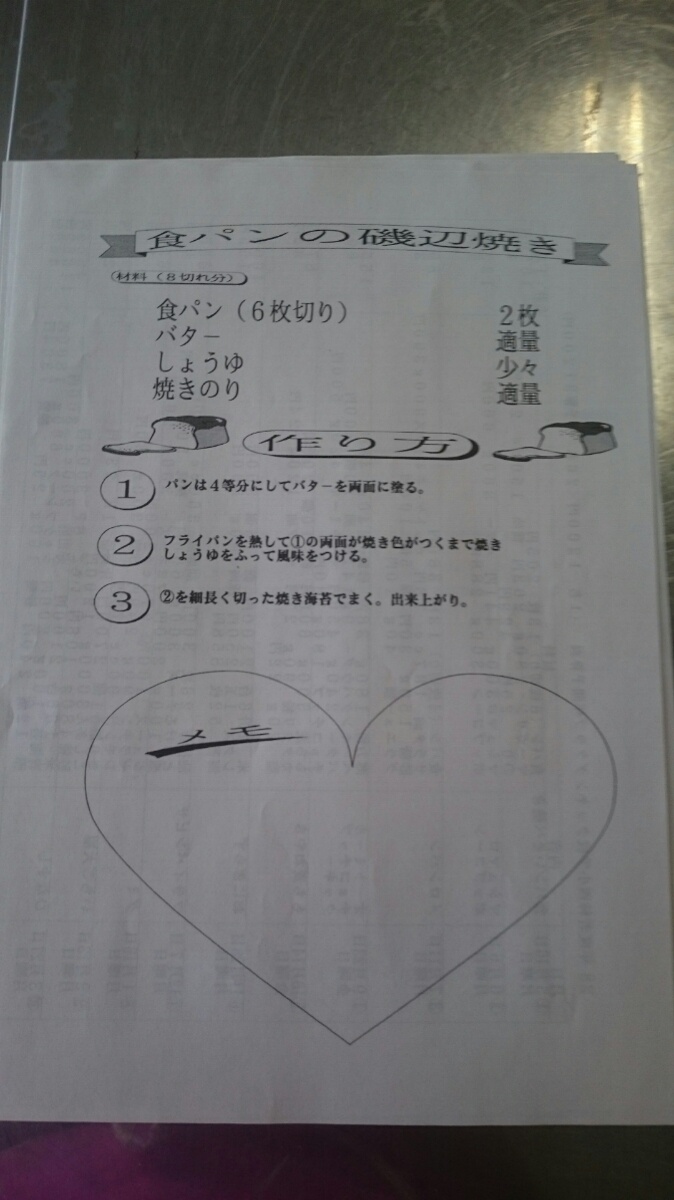 食パンの磯辺焼き
材料（８切れ分）
食パン（６枚切り） ２枚
バター 適量
しょうゆ 少々
焼きのり 適量
作り方
1 パンは４等分にしてバターを両面に塗る。
2 フライパンを熱して①の両面が焼き色がつくまで焼き
しょうゆをふって風味をつける。
3 ②を細長く切った焼き海苔でまく。出来上がり。
メモ